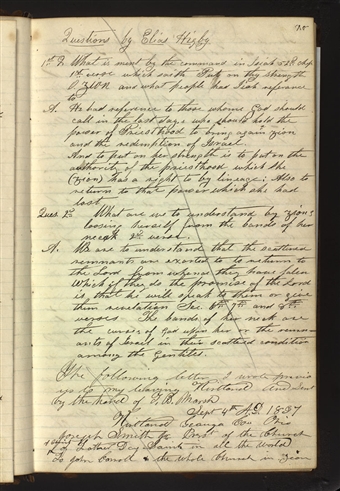 Questions by Elias Higby
1st Q. What is ment by the command in Isaiah 52d chap
1st verse which saith Put on thy strength
O Zion and what people had Isaiah referance
to
A. He had referance to those whome God should
call in the last day's who should hold the
power of Priesthood to bring again zion
and the redemption of Israel.
And to put on her strength is to put on the
authority of the priesthood which she
(zion) has a right to by lineage: Also to
return to that power which she had
lost
Ques. 2d What are we to understand by zions
loosing herself from the bands of her
neck 2d verse.
A. We are to understand that the scattered
remnants are exorted to to return to
the Lord from whence they have falen
which if they do the promise of the Lord
is that he will speak to them or give
them revelation See 6th 7th and 8th
verses The bands of her neck are
the curses of God upon her or the remn
ants of Israel in their scattered condition
among the Gentiles.
The following letter I wrote previo
us to my leaving Kirtland and sent
by the hand of T. B. Marsh
Sept 4th A.D. 1837
Kirtland Geauga Co. Ohio
Joseph Smith Jr Prest of the Church
of Latter Day Saints in all the world
To John Corroll & the whole Church in Zion